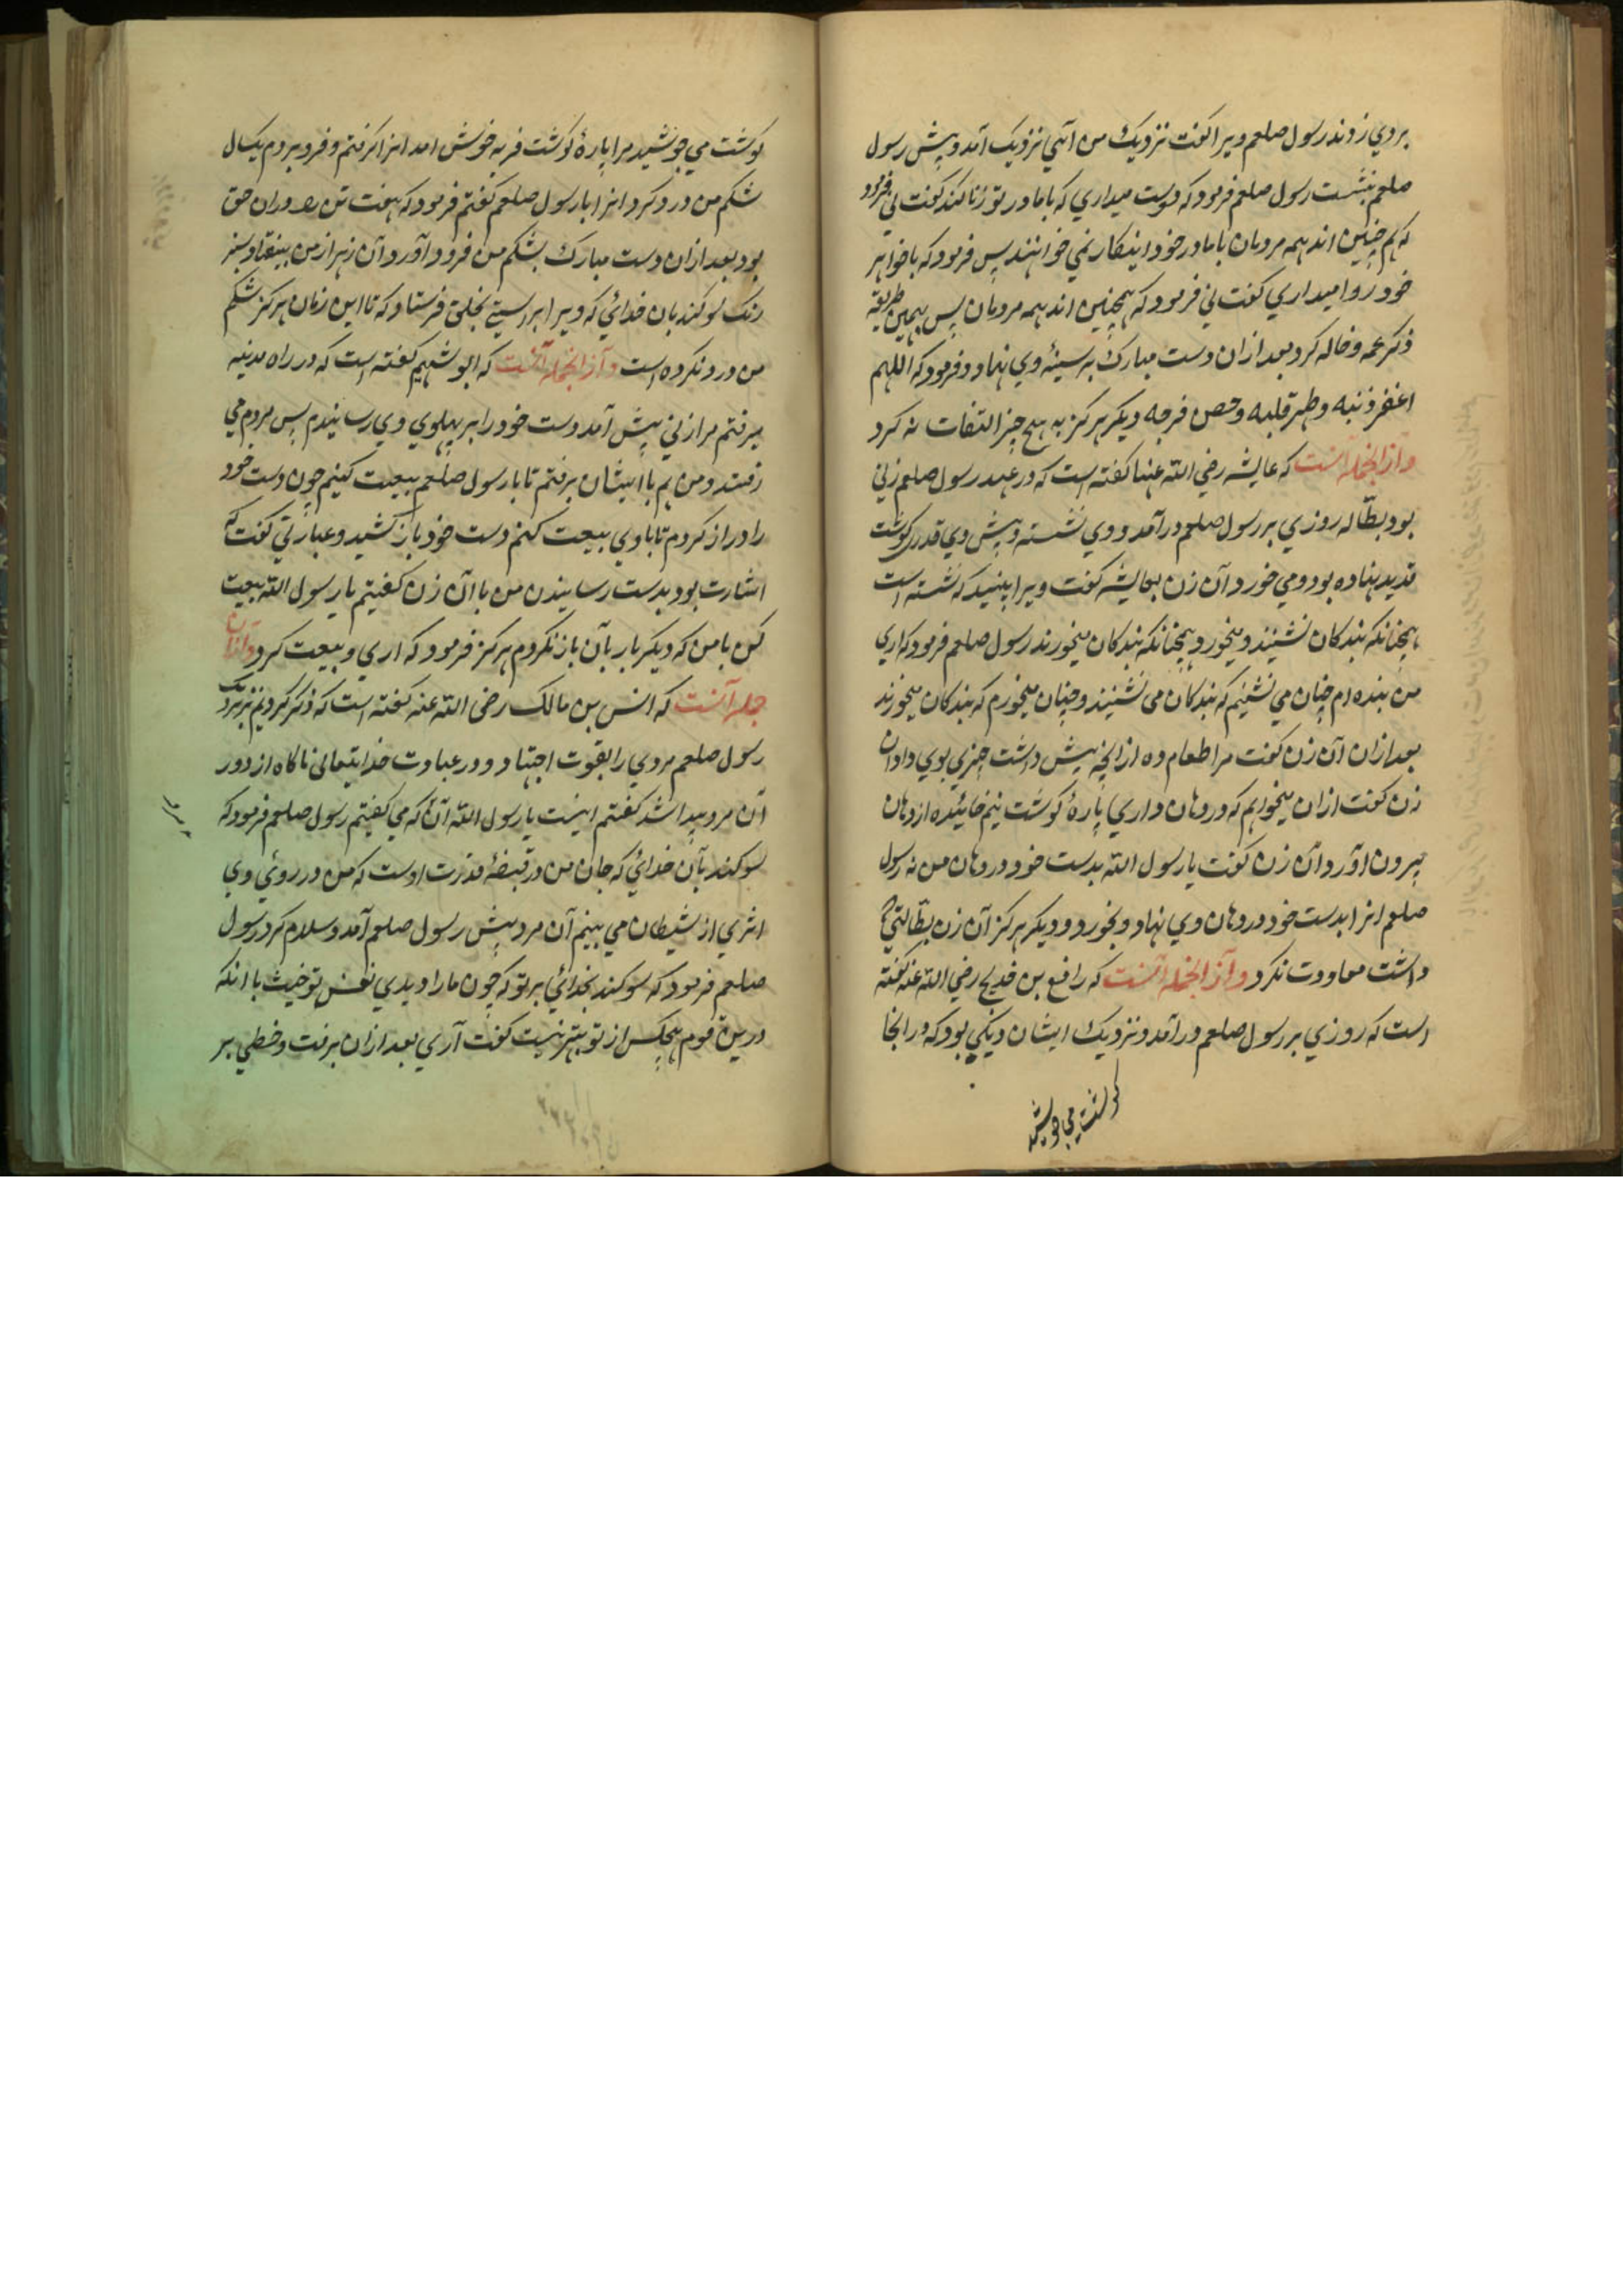 بروی زدند رسول صلعم ویرا گفت نزدیک من آئی نزدیک آمد و پیش رسول
صلعم بنشست رسول صلعم فرمود که دوست میداری که با مادر تو زنا کنند گفت نی فرمود
که هم چنین اند همه مردمان با مادر خود اینکار نمی خوانند پس فرمود که با خواهر
خود روا میداری گفت نی فرمود که همچنین اند همه مردمان پس بهمین طریقه
ذکر عمه و خاله کرد بعد ازان دست مبارک بر سینهٔ وی نهاد و فرمود که اللهم
اغفر ذنبه و طهر قلبه و حصن فرجه دیگر هرگز به هیچ چیز التفات نه کرد
و از انجمله آنست که عایشه رضی الله عنها گفته است که در عهد رسول صلعم زنی
بود بطّاله روزی بر رسول صلعم درآمد و وی نشسته و پیش وی قدری گوشت
قدید نهاده بود و می خورد آن زن بعایشه گفت ویرا ببنید که نشسته است
همچنانکه بندکان نشینند و میخورد همچنانکه بندکان میخورند رسول صلعم فرمود که اری
من بنده ام چنان می نشینم که بندکان می نشینند و چنان میخورم که بندکان میخورند
بعد ازان آن زن گفت مرا طعام ده از انچه پیش داشت چیزی بوی داد ان
زن گفت ازان میخواهم که در دهان داری پارهٔ گوشت نیم خائیده از دهان
بیرون اورد آن زن گفت یا رسول الله بدست خود در دهان من نه رسول
صلعم انرا بدست خود در دهان وی نهاد و بخورد و دیگر هرگز آن زن بطّالتی که
داشت معاودت نکرد و از انجمله آنست که رافع بن خدیج رضی الله عنه گفته
است که روزی بر رسول صلعم درآمد و نزدیک ایشان دیکی بود که در انجا
گوشت می جوشید
گوشت می جوشید مرا پارهٔ گوشت فربه خوش امد انرا گرفتم و فرو بردم یکسال
شکم من درد کرد انرا با رسول صلعم گفتم فرمود که هفت تن را دران حق
بود بعد ازان دست مبارک بشکم من فرود آورد آن زهر از من بیفتاد سبز
رنک سوکند بان خدائی که ویرا براستی بخلق فرستاد که تا این زمان هرگز شکم
من درد نکرده است و از انجمله آنست که ابو شهیم گفته است که در راه مدینه
میرفتم مرا زنی پیش آمد دست خود را بر پهلوی وی رسانیدم پس مردم می
رفتند و من هم با ایشان برفتم تا با رسول صلعم بیعت کنیم چون دست خود
را دراز کردم تا با وی بیعت کنم دست خود باز کشید و عبارتی گفت که
اشارت بود بدست رسانیدن من با آن زن گفتیم یا رسول الله بیعت
کن با من که دیگر بار بآن باز نگردم هرگز فرمود که اری و بیعت کرد و ازان
جمله آنست که انس بن مالک رضی الله عنه گفته است که ذکر کردیم نزدیک
رسول صلعم مردی را بقوت اجتهاد و در عبادت خدایتعالی ناگاه از دور
آن مرد پیدا شد گفتم اینست یا رسول الله آن که می گفتیم رسول صلعم فرمود که
سوکند بآن خدائی که جان من در قبضهٔ قدرت اوست که من در روئی وی
اثری از شیطان می بینم آن مرد پیش رسول صلعم آمد و سلام کرد رسول
صلعم فرمود که سوکند بخدائی بر تو که چون ما را دیدی نفس تو با انکه
درین قوم هیچکس از تو بهتر نیست گفت آری بعد ازان برفت و خطی بر